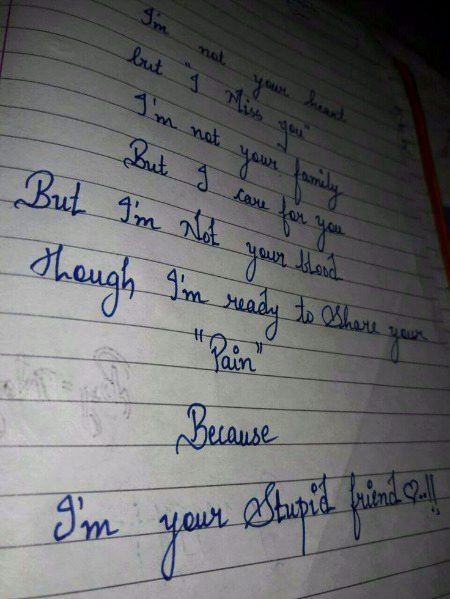 I'm not your heart
but "I Miss you"
I'm not your family
But I care for you
But I'm Not your blood
though I'm ready to Share your
"Pain"
Because
I'm your Stupid friend♡..!!